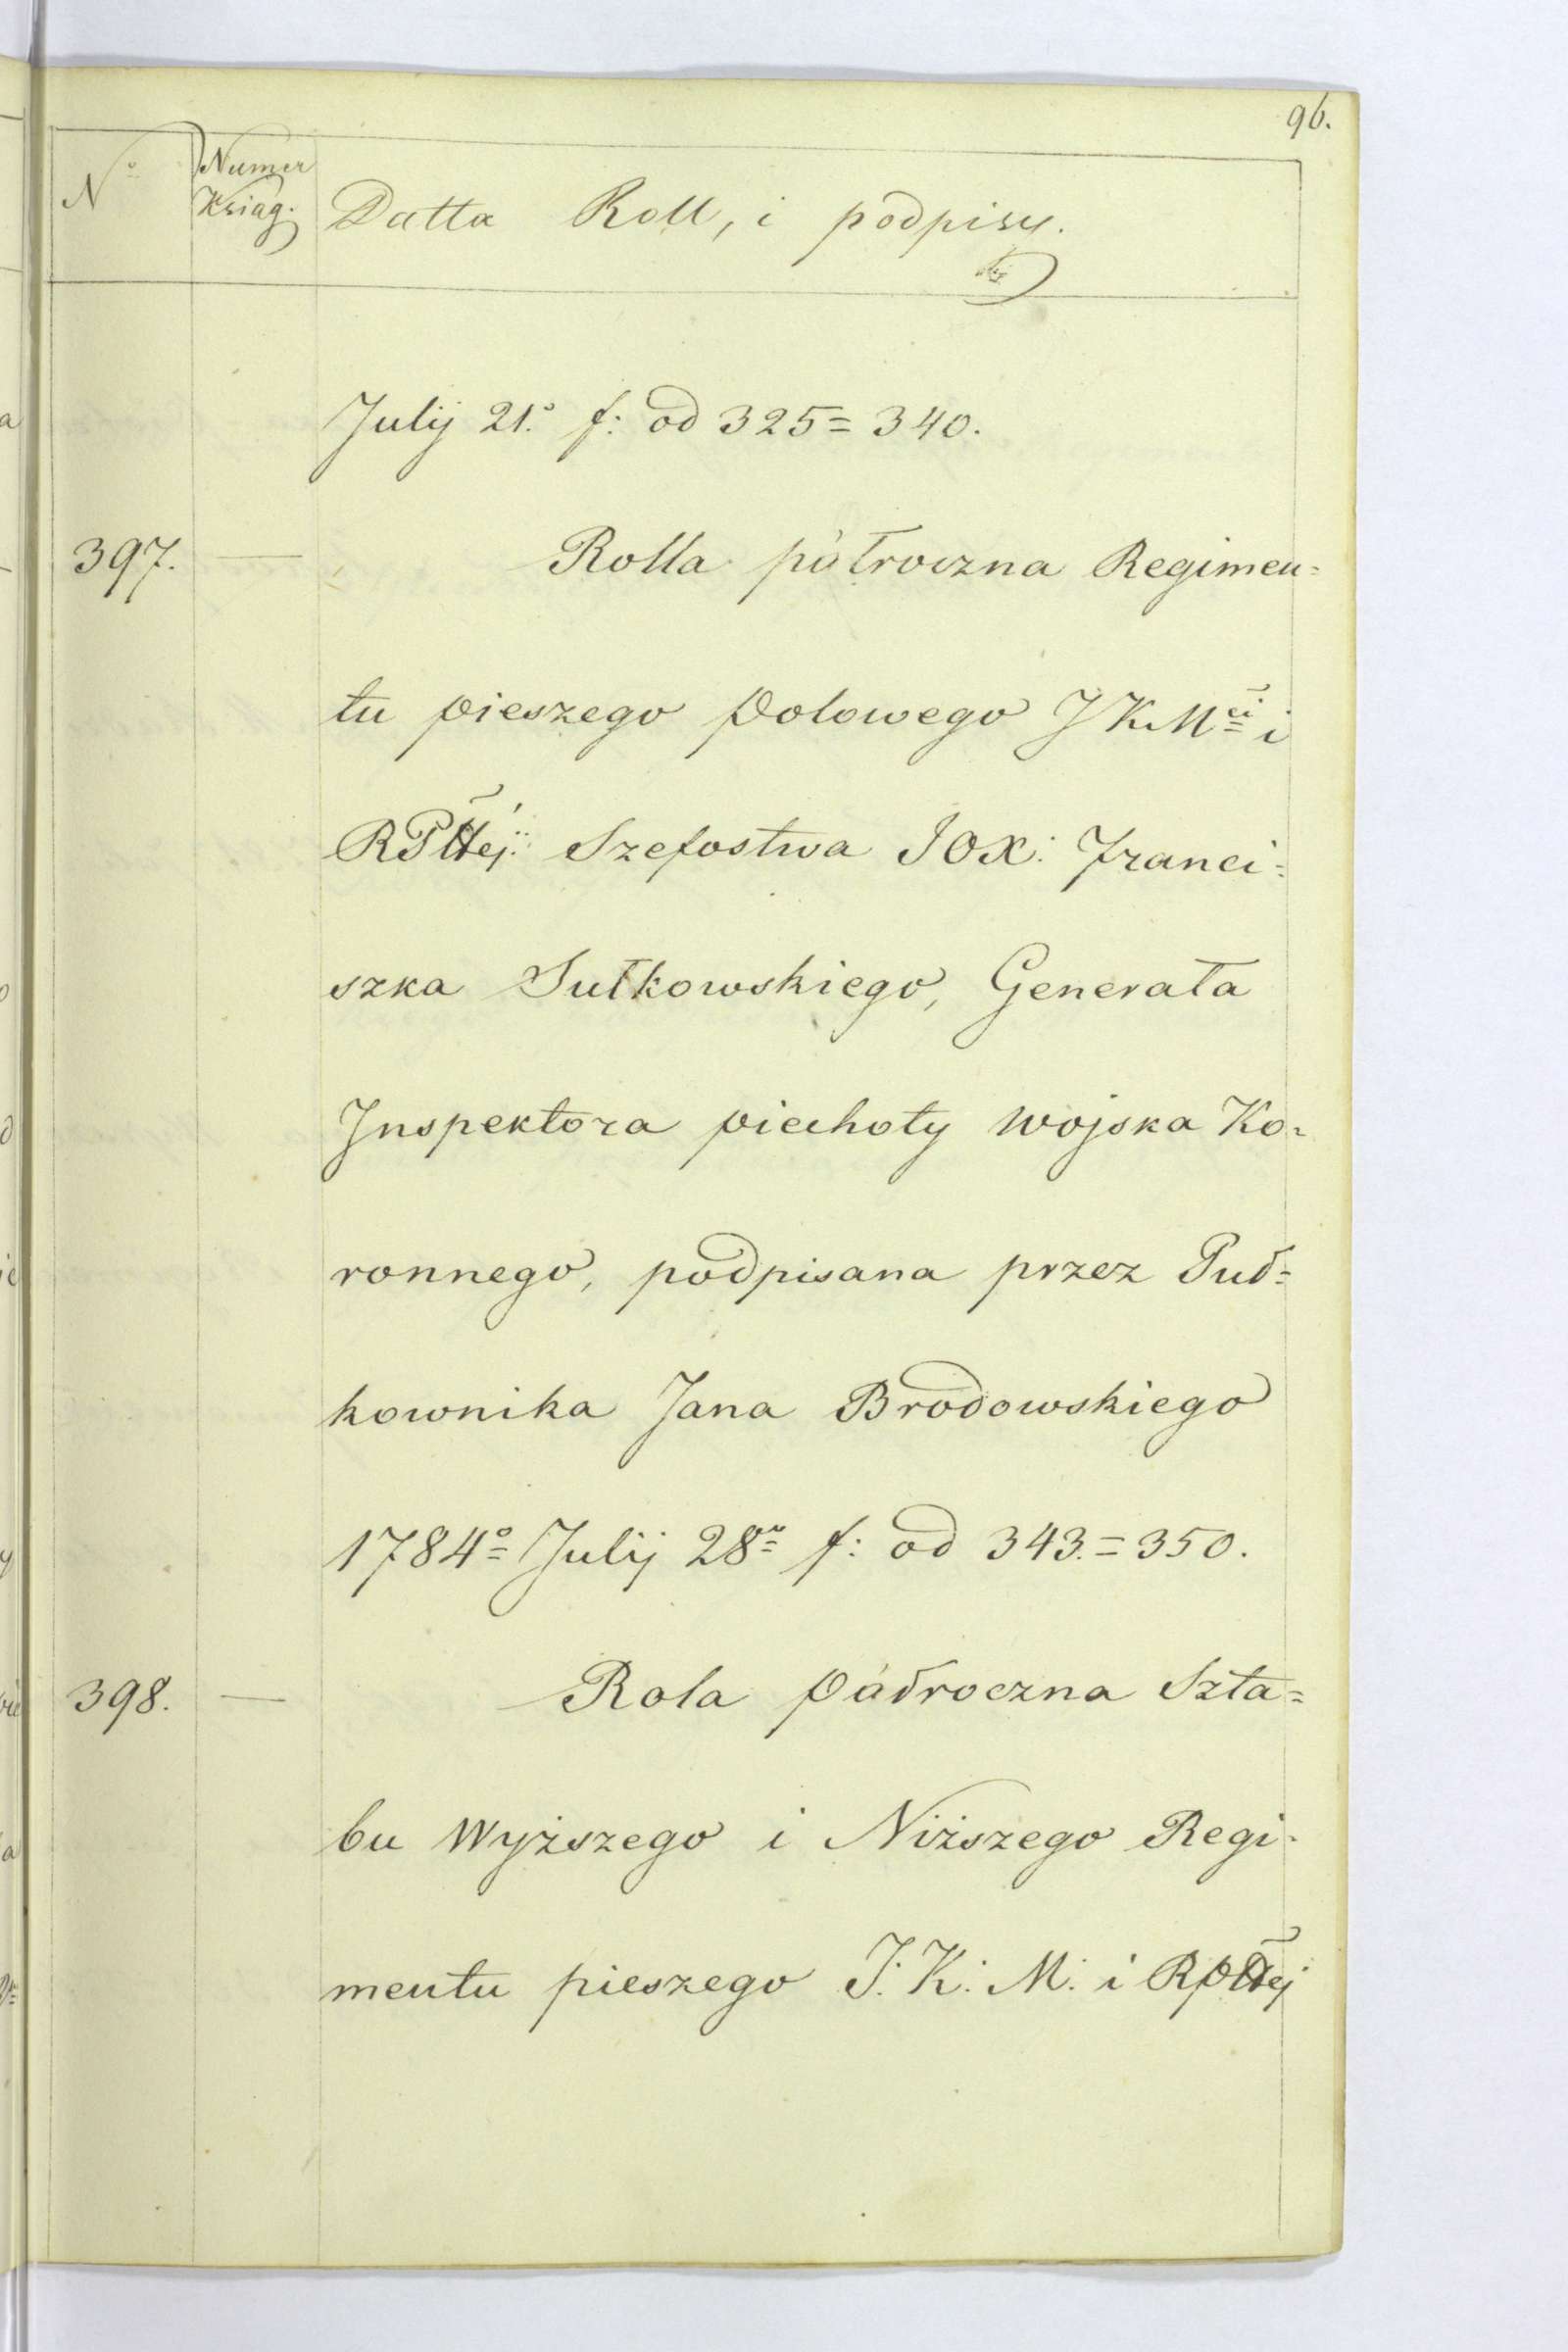 96.
No
Numer
Ksiąg.
Datta Roll, i podpisy.
Julij 21.o f: od 325= 340.
397. — Rolla półroczna Regimen=
tu pieszego Polowego JKMci i
RPttej: Szefostwa JOX: Franci=
szka Sułkowskiego, Generała
Inspektora piechoty wojska Ko=
ronnego, podpisana przez Puł=
kownika Jana Brodowskiego
1784o Julij 28a f: od 343.=350.
398. — Rola Półroczna Szta=
bu Wyższego i Niższego Regi=
mentu pieszego J: K: M: i Rpttej